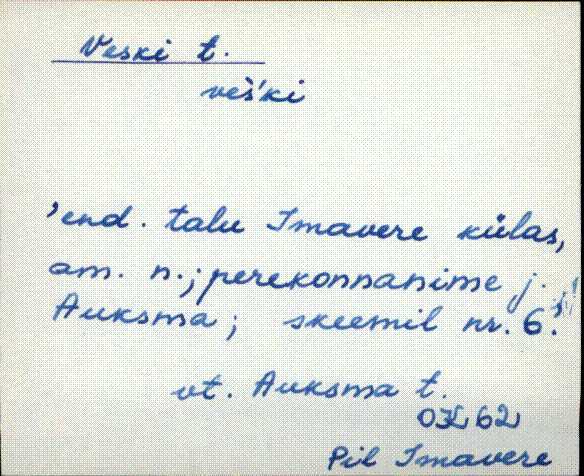 Veski t.
veš'ki
'end. talu Imavere külas,
am. n.; perekonnanime j.
Auksma; skeemil nr. 6.
vt. Auksma t.
62
Pil Imavere